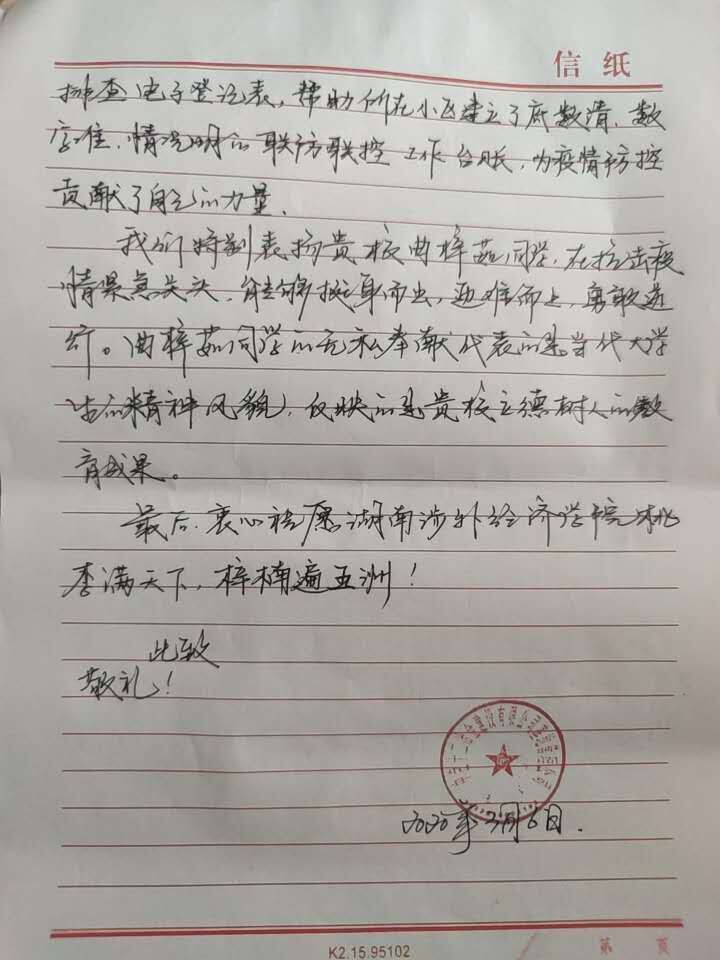 信 纸
排查电子登记表，帮助所在小区建立了底数清、数
字准、情况明的联防联控工作台账，为疫情防控
贡献了自己的力量。
我们特别表扬贵校曲梓茹同学，在抗击疫
情紧急关头，能够挺身而出，迎难而上，勇敢逆
行。曲梓茹同学的无私奉献代表的是当代大学
生的精神风貌，反映的是贵校立德树人的教
育成果。
最后，衷心祝愿湖南涉外经济学院桃
李满天下，梓楠遍五洲！
此致
敬礼！
2020年3月6日.
K2.15.95102
第 页